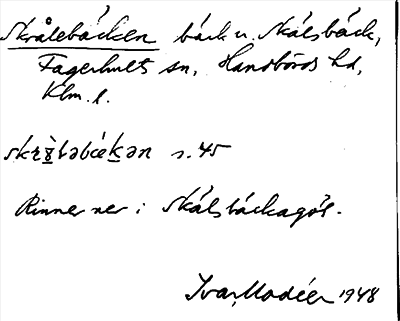 Skrålebäcken bäck v. Skälsbäck,
Fagerhults sn, Handbörds hd,
Klm. l.
s. 45
Rinner ner i Skälsbäckagöl.
Ivar Modéer 1948